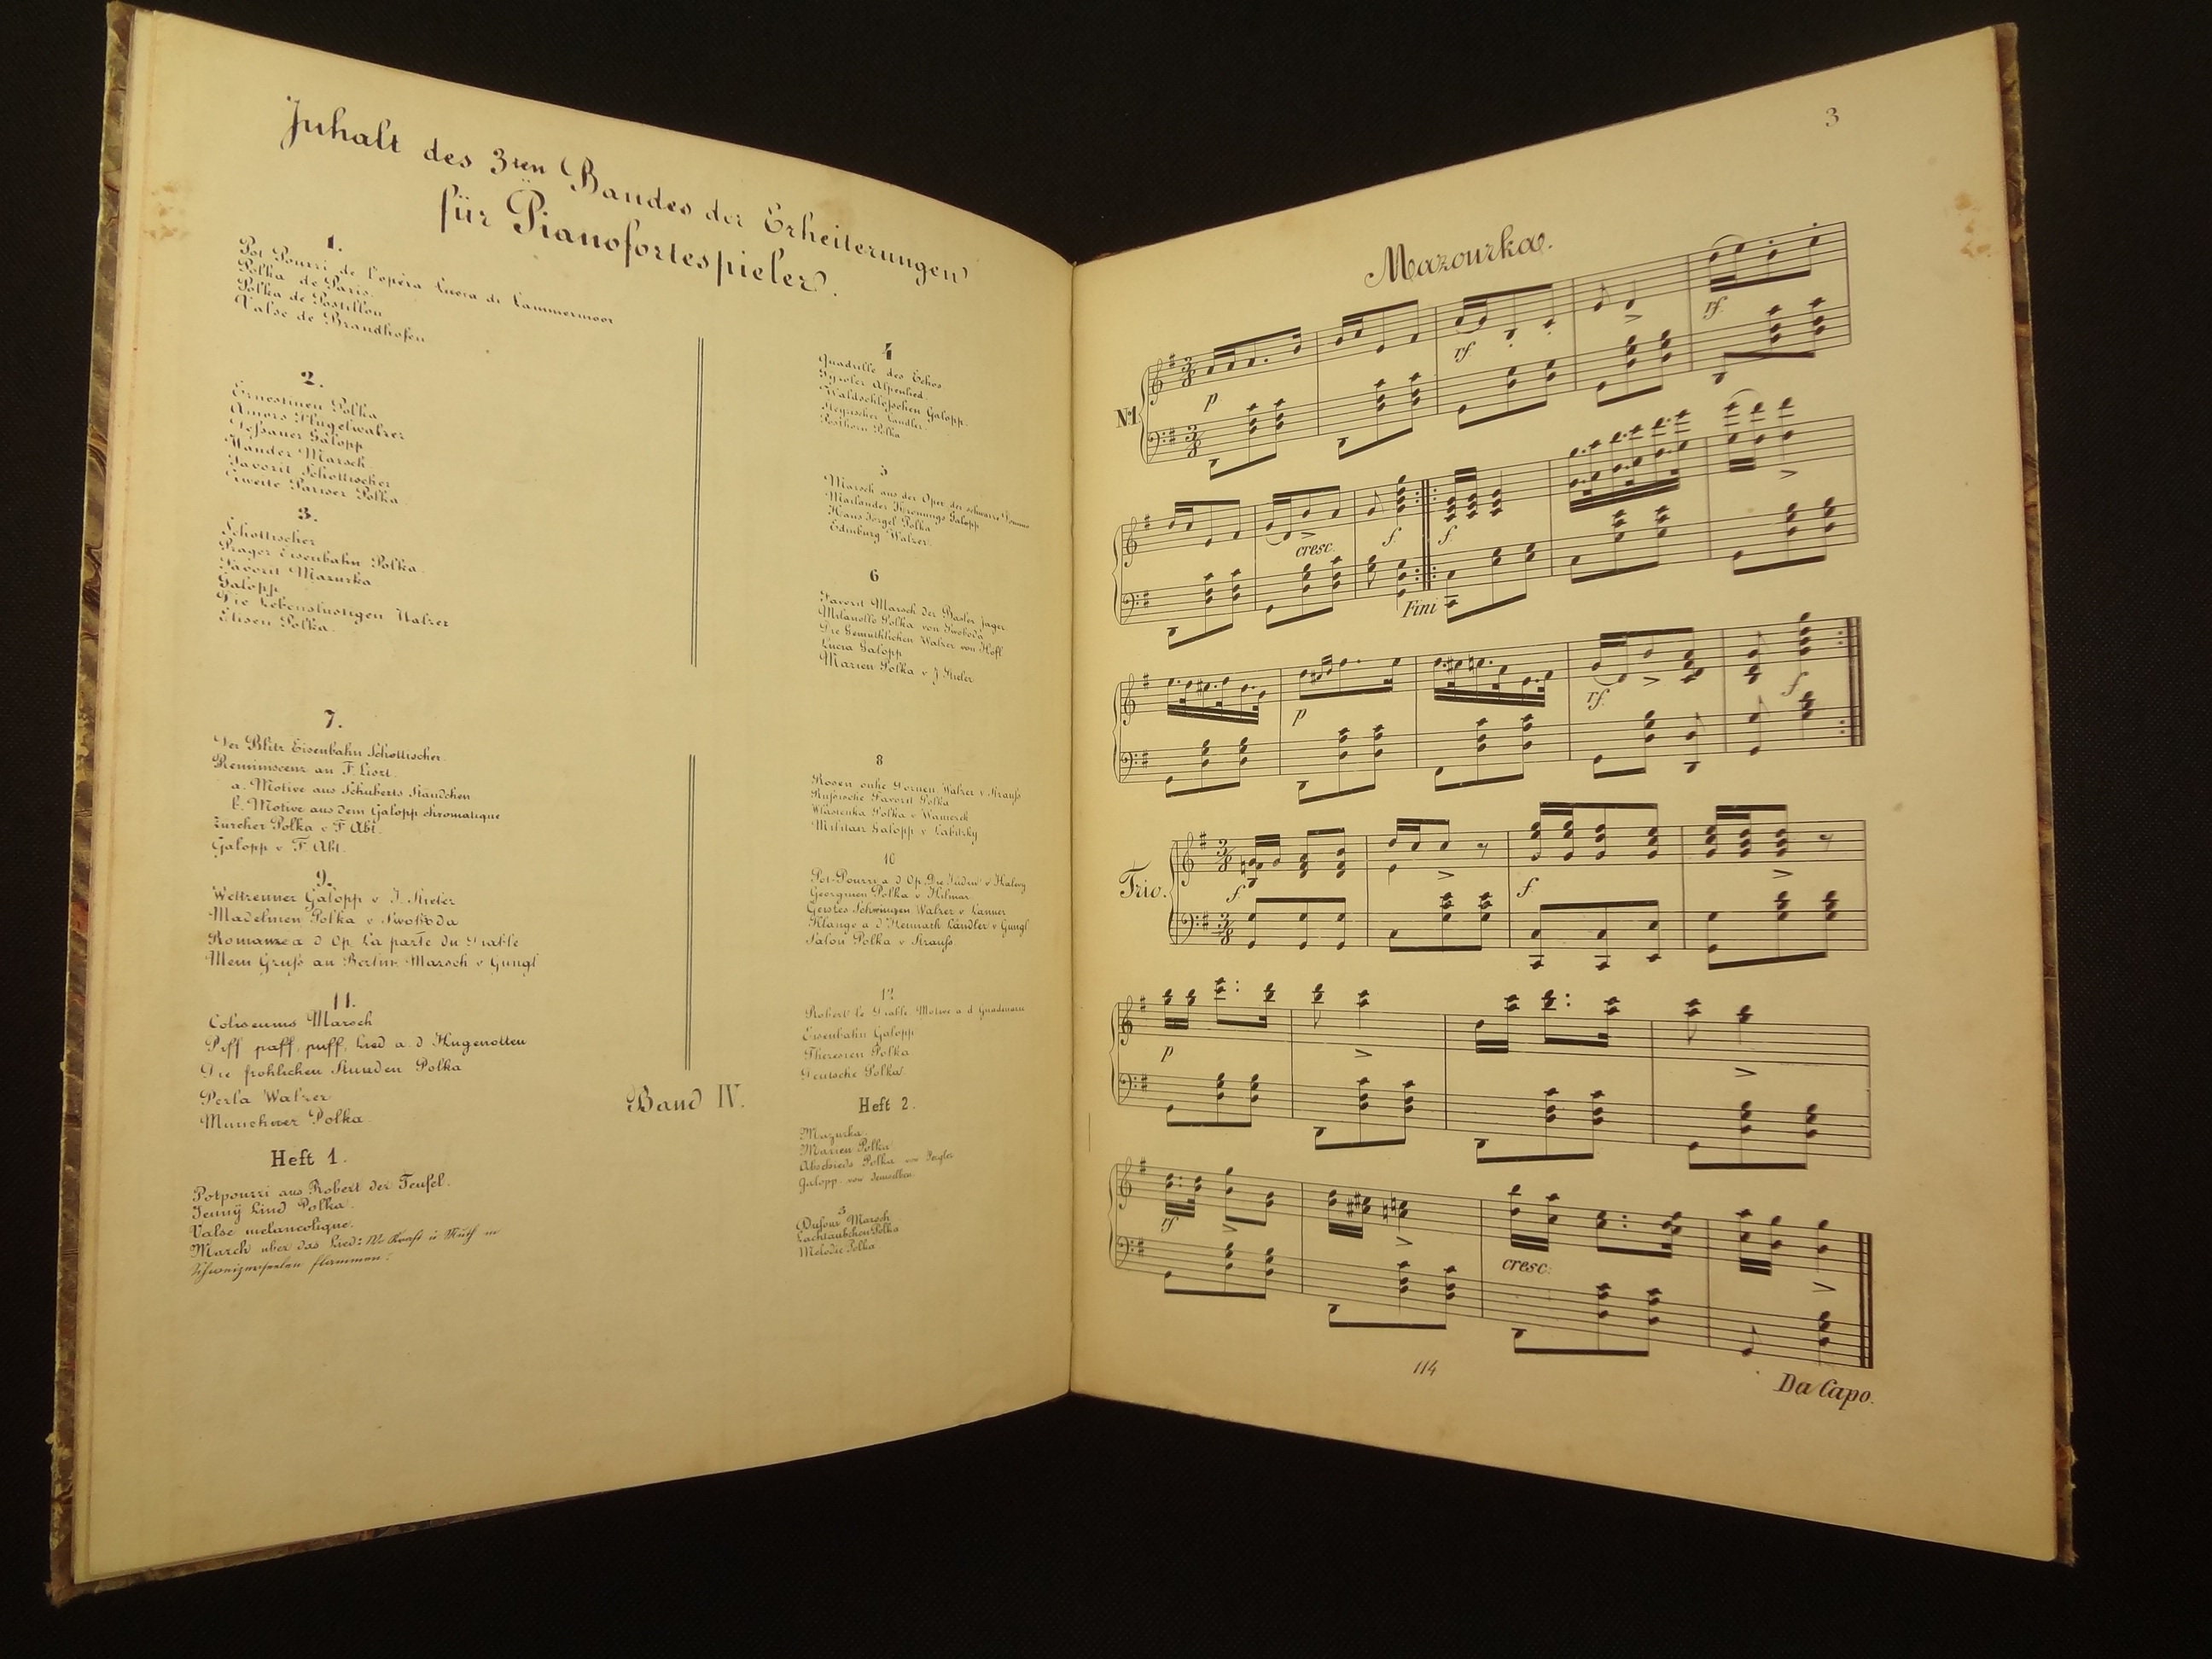 Inhalt des 3ten Bandes der Erheiterungen
für Pianofortespieler.
1.
Pot Pourri de l'opéra Lucia di Lammermoor
Polka de Paris.
Polka de Postillon
Valse de Brandhofen
2.
Ernestinen Polka
Amors Flügelwalzer
Deßauer Galopp
Wander Marsch
Favorit Schottischer
Zweite Pariser Polka
3.
Schottischer
Prager Eisenbahn Polka
Favorit Mazurka
Galopp
Die Lebenslustigen Walzer
Elisen Polka.
4
Quadrille des Echos
Tyroler Alpenlied
Waldschlößchen Galopp.
Steyrischer Ländler
Posthorn Polka
5
Marsch aus der Oper der schwarze Domino
Mailänder Krönungs Galopp
Hans Jörgel Polka
Edinburg Walzer.
6
Favorit Marsch der Basler Jäger
Milanollo Polka von Swoboda
Die Gemüthlichen Walzer von Höfl
Lucia Galopp
Marien Polka v J Stieler
7.
Der Blitz Eisenbahn Schottischer.
Reminiscenz an F. Liszt.
a. Motive aus Schuberts Ständchen
b. Motive aus dem Galopp chromatique
Zürcher Polka v F Abt.
Galopp v F. Abt.
8
Rosen ohne Dornen, Walzer v Strauß
Rußische Favorit Polka
Wlastenka Polka v
Militair Galopp v Labitzky
9.
Wettrenner Galopp v J. Stieler
Madelinen Polka v Swoboda
Romanze a d Op. La parte du Diable
Mein Gruß an Berlin. Marsch v Gungl
10
Pot-Pourri a d Op. Die Jüdin v Halevy
Georginen Polka v Hilmar
Geistes Schwingen Walzer v Lanner
Klänge a d Heimath Ländler v Gungl
Salon Polka v Strauß
11.
Coliseums Marsch
Piff paff, puff, Lied a. d Hugenotten
Die fröhlichen Stunden Polka
Perla Walzer
Münchner Polka.
12
Robert le Diable. Motive a d
Eisenbahn Galopp
Theresien Polka
Deutsche Polka
Band IV.
Heft 1.
Potpourri aus Robert der Teufel.
Jenny Lind Polka.
Valse melancolique.
March über das Lied: Wo Kraft u Muth in
Schweizerseelen flammen!
Heft 2.
Mazurka.
Marien Polka
Abschieds Polka von
Galopp von demselben
3
Dufour Marsch
Lachtaubchen Polka
Melodie Polka
3
Mazourka.
N.1.
p
rf
rf.
cresc.
f
f
Fini
p
rf.
f
Trio.
f
f
p
rf
cresc:
114
Da Capo.